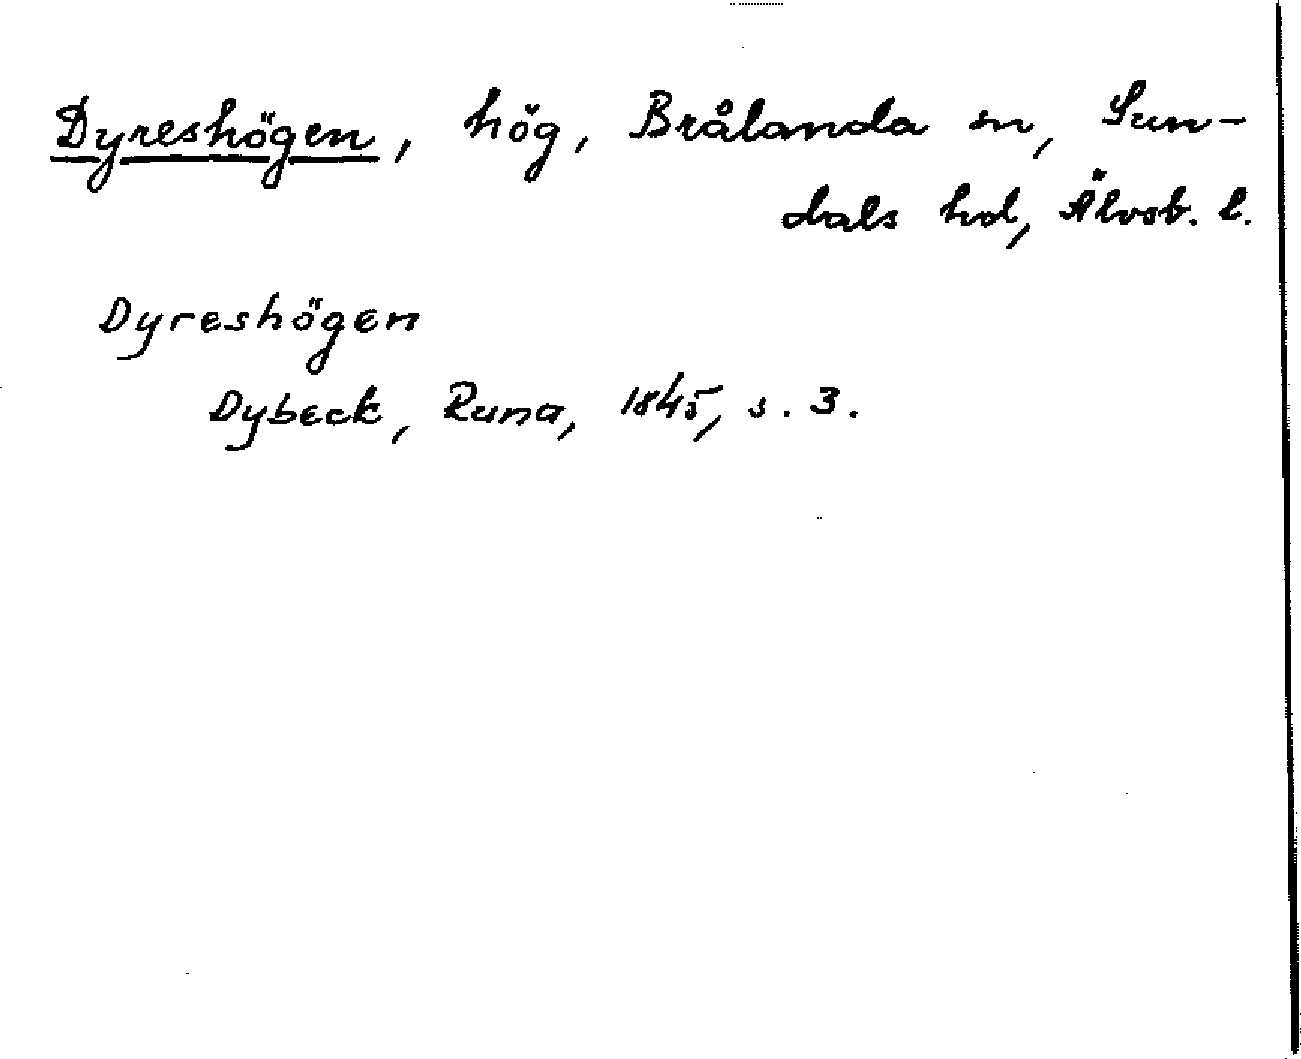 Dyreshögen, hög, Brålanda sn, Sun-
dals hd, Älvsb. l.
Dyreshögen
Dybeck, Runa, 1845, s. 3.